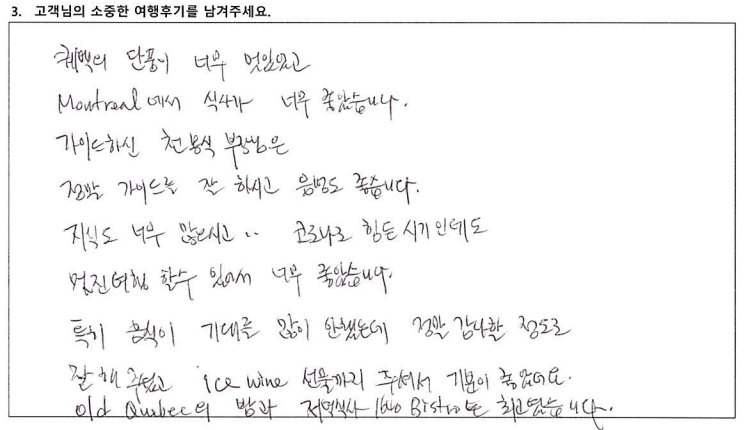 3. 고객님의 소중한 여행후기를 남겨주세요.
퀘벡의 단풍이 너무 멋있었고
Montreal에서 식사가 너무 좋았습니다.
가이드하신 천봉식 부장님은
정말 가이드를 잘 하시고 음성도 좋습니다.
지식도 너무 많으시고.. 코로나로 힘든 시기인데도
멋진여행 할수 있어서 너무 좋았습니다.
특히 음식이 기대를 많이 안했는데 정말 감사할 정도로
잘 해 주셨고 ice wine 선물까지 주셔서 기분이 좋았어요.
old Quebec의 밤과 저녁식사 1640 Bistro는 최고였습니다.